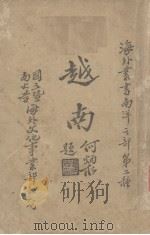 海外叢書南洋之部第二種
越南
何炳松
題
國立暨
南大學
海外文化事業部
www.duxiu.com